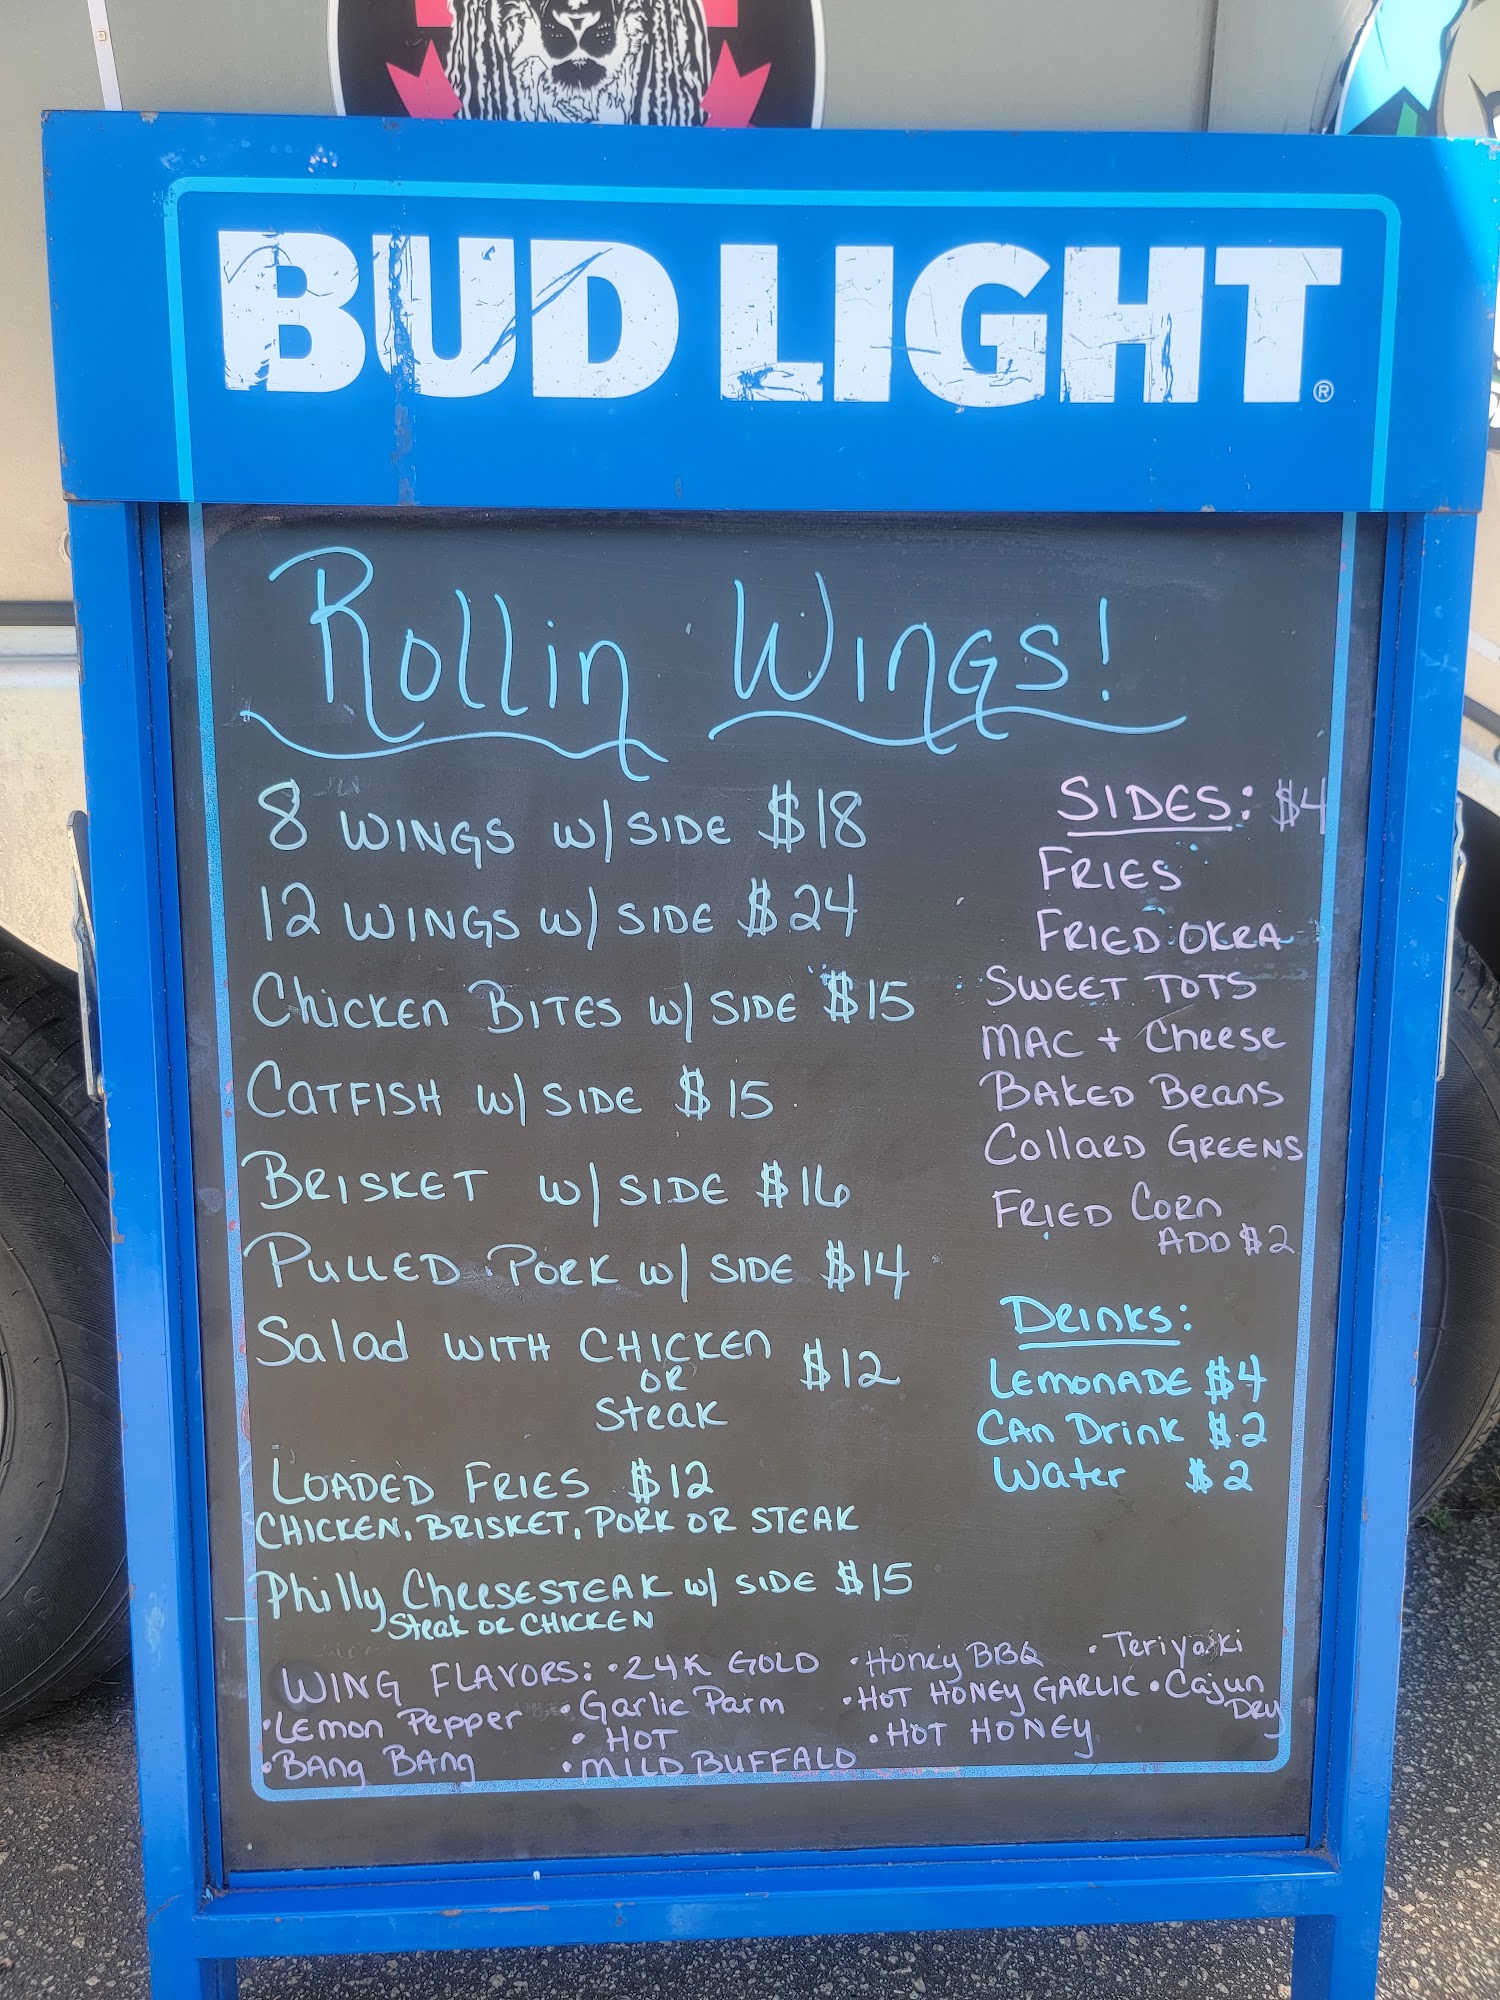 BUD LIGHT®
Rollin Wings!
8 WINGS w/ SIDE $18
12 WINGS w/ SIDE $24
Chicken BITES w/ SIDE $15
CATFISH w/ SIDE $15
BRISKET w/ SIDE $16
PULLED PORK w/ SIDE $14
Salad WITH CHICKEN $12
OR
Steak
LOADED FRIES $12
CHICKEN, BRISKET, PORK OR STEAK
Philly CheeseSTEAK w/ SIDE $15
Steak OR CHICKEN
SIDES: $4
FRIES
FRIED OKRA
SWEET TOTS
MAC + Cheese
BAKED Beans
Collard GREENS
FRIED Corn
ADD $2
DRINKS:
LEMONADE $4
CAn Drink $2
Water $2
WING FLAVORS: • 24K GOLD • Honey BBQ • Teriyaki
• LEmon Pepper • Garlic Parm • HOT HONEY GARLIC • Cajun Dry
• BAng BAng • HOT • HOT HONEY
• MILD BUFFALO